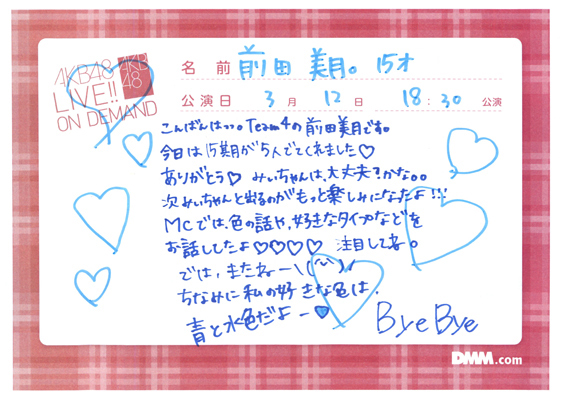 AKB48
LIVE!!
ON DEMAND
AKB
48
名前 前田 美月。 15才
公演日 3月 12日 18:30 公演
こんばんはっっ。Team4の前田美月です。
今日は15期が5人でてくれました♡
ありがとう♡ みぃちゃんは、大丈夫?かな。。
次みぃちゃんと出るのがもっと楽しみになったよ!!!
MCでは、色の話や、好きなタイプなどを
お話ししたよ♡♡♡♡ 注目してネ。
では、またねー\(^^)/
ちなみに私の好きな色は、
青と水色だよー♥
Bye Bye
DMM.com